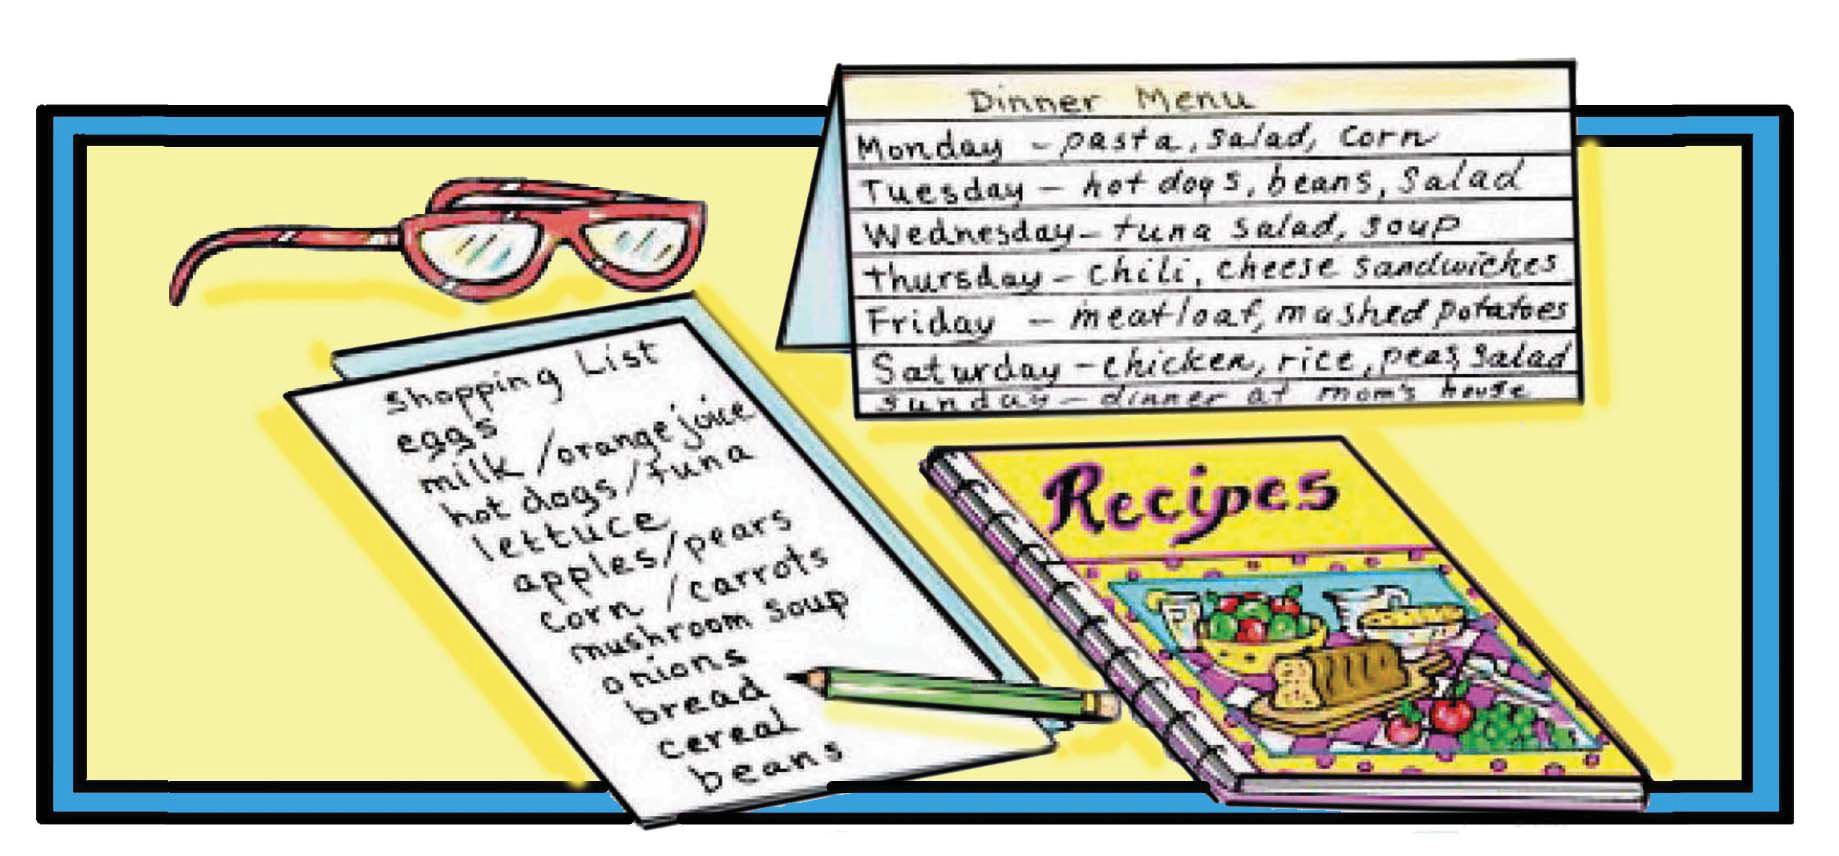 Dinner Menu
Monday - pasta, salad, corn
Tuesday - hot dogs, beans, salad
Wednesday - tuna salad, soup
Thursday - chili, cheese sandwiches
Friday - meatloaf, mashed potatoes
Saturday - chicken, rice, peas, salad
Sunday - dinner at mom's house
Shopping List
eggs
milk/orange juice
hot dogs/tuna
lettuce
apples/pears
corn/carrots
mushroom soup
onions
bread
cereal
beans
Recipes